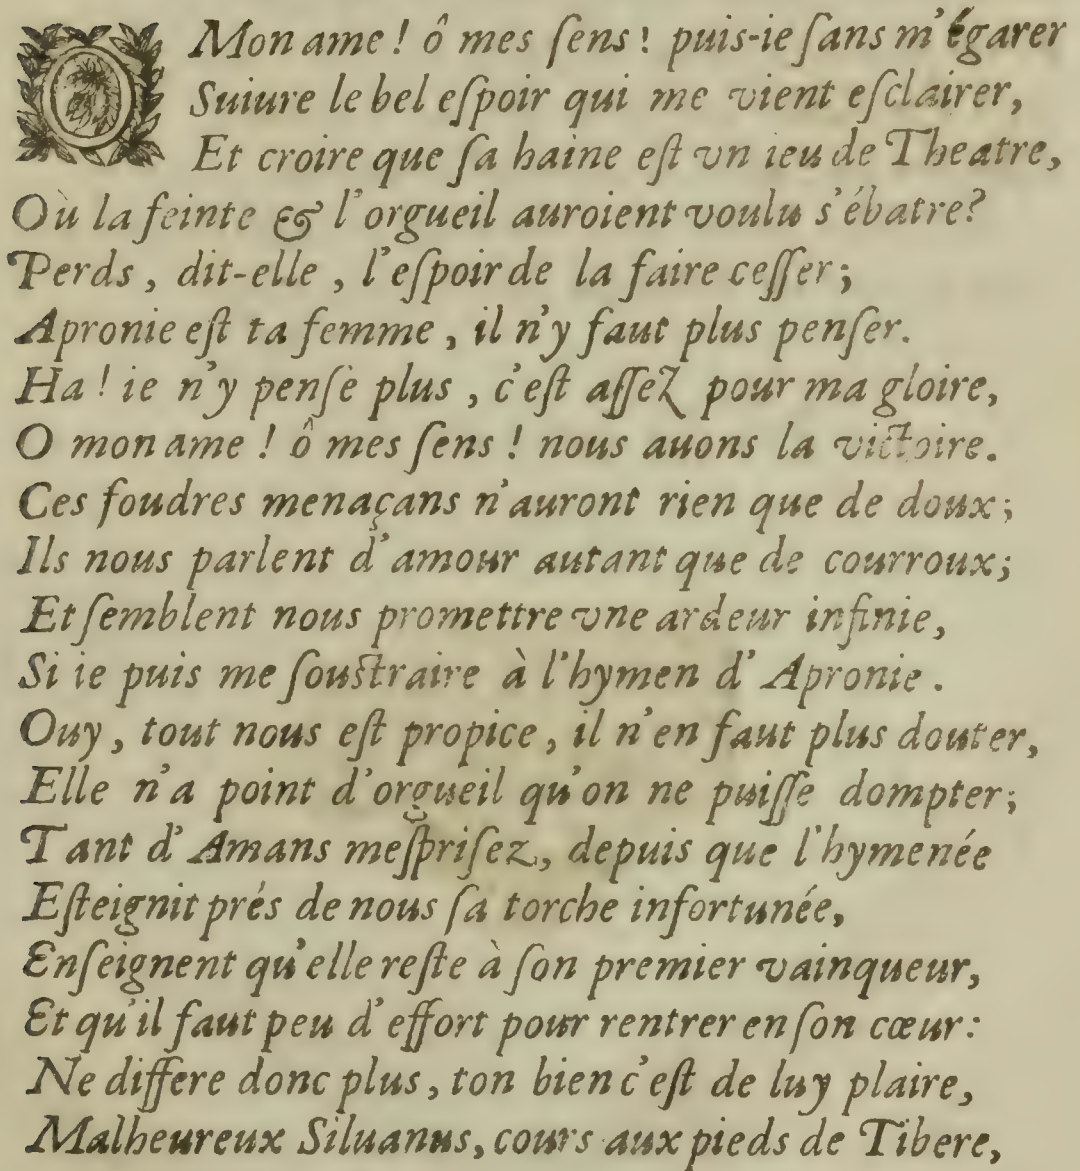 O Mon ame ! ô mes ſens ! puis-ie ſans m'égarer
Suiure le bel eſpoir qui me vient eſclairer,
Et croire que ſa haine eſt vn ieu de Theatre,
Où la feinte & l'orgueil auroient voulu s'ébatre?
Perds, dit-elle, l'eſpoir de la faire ceſſer;
Apronie eſt ta femme, il n'y faut plus penſer.
Ha ! ie n'y penſe plus, c'eſt aſſez pour ma gloire,
O mon ame ! ô mes ſens ! nous auons la victoire.
Ces foudres menaçans n'auront rien que de doux;
Ils nous parlent d'amour autant que de courroux;
Et ſemblent nous promettre vne ardeur infinie,
Si ie puis me ſouſtraire à l'hymen d'Apronie.
Ouy, tout nous eſt propice, il n'en faut plus douter,
Elle n'a point d'orgueil qu'on ne puiſſe dompter;
Tant d'Amans meſpriſez, depuis que l'hymenée
Eſteignit prés de nous ſa torche infortunée,
Enſeignent qu'elle reſte à ſon premier vainqueur,
Et qu'il faut peu d'effort pour rentrer en ſon cœur:
Ne differe donc plus, ton bien c'eſt de luy plaire,
Malheureux Siluanus, cours aux pieds de Tibere,